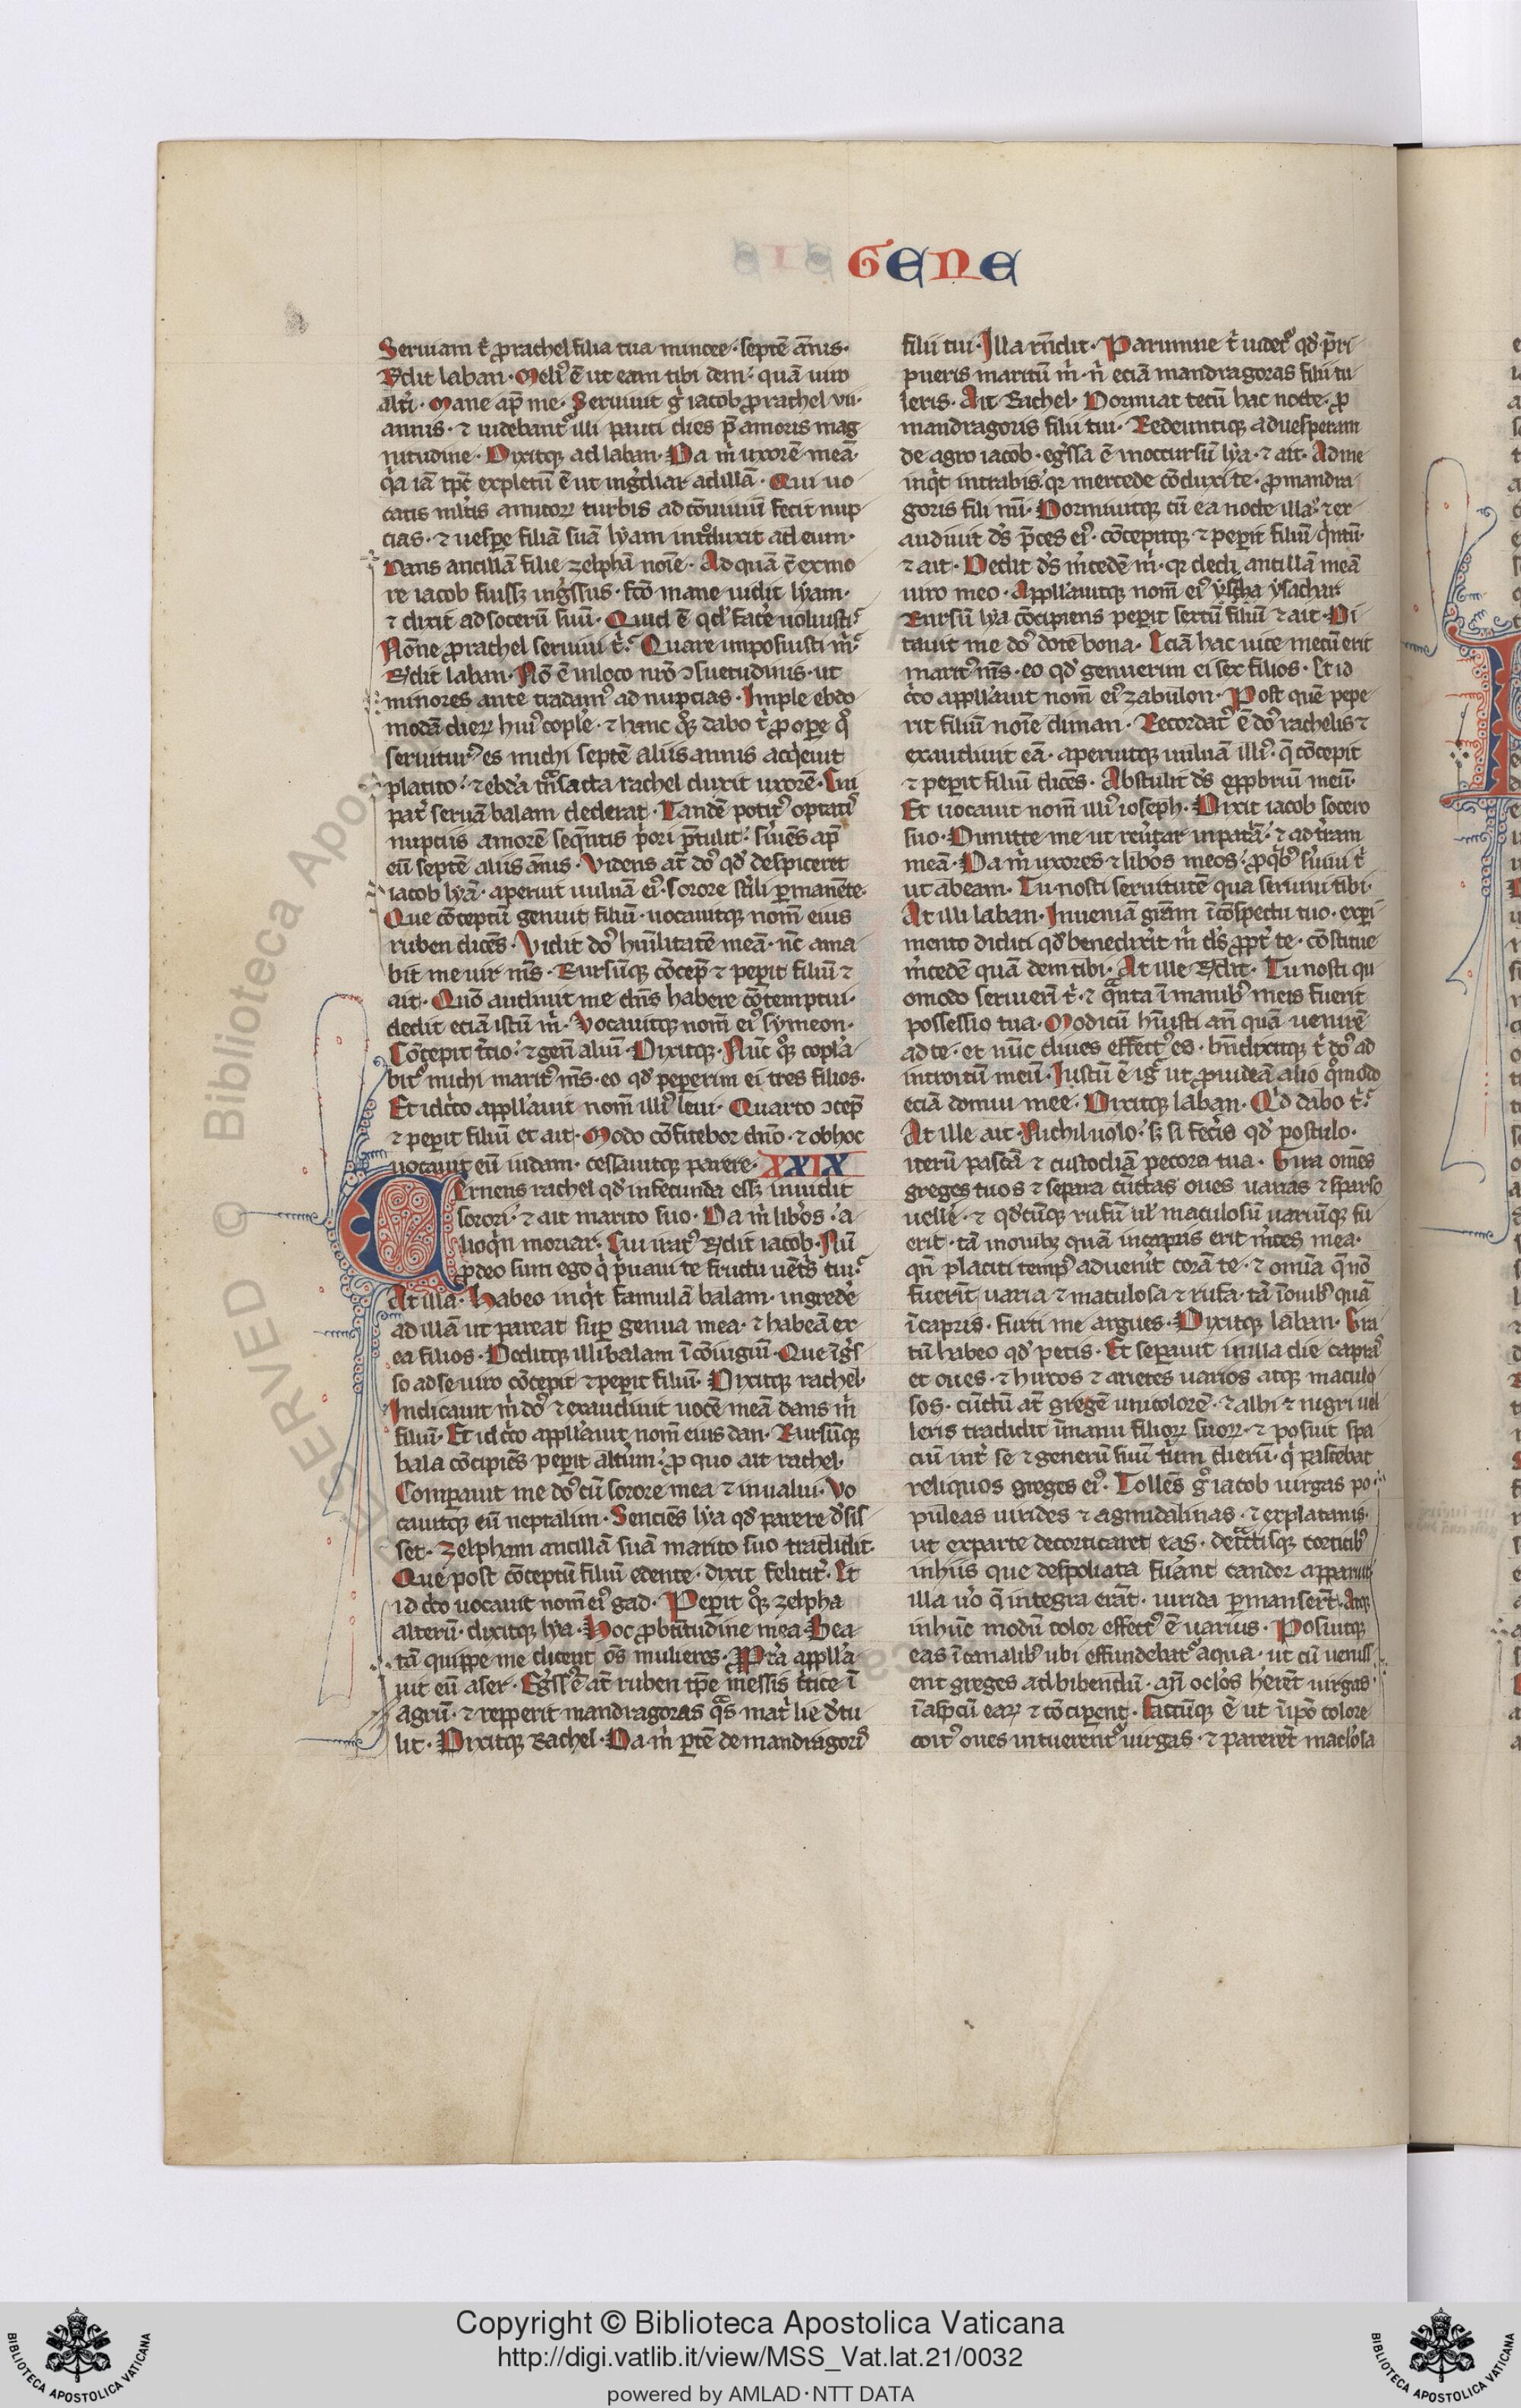 GENE
Seruiam t̉ ꝓrachel filia tua minore· septē ānis·
Rn̄dit laban· Meliꝰ ē ut eam tibi dem· quā uiro
alt̉i· Mane ap̄ me· Seruiuit g̉ iacob ꝓ rachel vii·
annis· ⁊ uidebant᷑ illi pauci dies p̄ amoris mag
nitudine· Dixitqꝫ ad laban· Da m̉ uxorē meā·
q̉a iā tp̄c expletū ē ut ing̉diar ad illā· Qui uo
catis ml̉tis amicoꝝ turbis ad cōuiuiū fecit nup
cias· ⁊ uesꝑe filiā suā lyam int̉duxit ad eum·
Dans ancillā filie zelphā noīe· Ad quā c̄ ex mo
re iacob fuissꝫ ing̉ssus· fc̄o mane uidit lyam·
⁊ dixit ad socerū suū· Quid ē qd̉ fac̉e uoluisti·
Nōne ꝓ rachel seruiui t̉· Quare imposuisti m̉·
Rn̄dit laban· Nō ē in loco nr̄o ↄsuetudinis· ut
minores ante tradamꝰ ad nupcias· Imple ebdo
modā dieꝝ huiꝰ copl̉e· ⁊ hanc qͦꝫ dabo t̉ ꝓ oꝑe qͦ
seruiturꝰ es michi septē aliis annis acq̉euit
placito· ⁊ ebd̉a t̉nsacta rachel duxit uxorē· Cui
pat̉ seruā balam dederat· Tandē potitꝰ optatꝭ
nuptiis amorē seq̄ntis p̉ori p̄tulit· s̉uiēs ap̄
eū septē aliis ānis· Videns at̄ do᷒ qd̉ despiceret
iacob lyā· aperuit uuluā eiꝰ· sorore st̉ili ꝑmanēte·
Que cōceptū genuit filiū· uocauitqꝫ nom̄ eius
ruben dicēs· Vidit do᷒ hūilitatē meā· nc̄ ama
bit me uir mꝰs· Rursūqꝫ cōcep̄ ⁊ peꝑit filiū ⁊
ait· Quō audiuit me dn̄s habere cōtemptui·
dedit eciā istū m̉· Vocauitqꝫ nom̄ eiꝰ symeon·
Cōcepit t̉cio· ⁊ gen̄ aliū· Dixitqꝫ· Nūc qͦꝫ copl̉a
bit᷑ michi maritꝰ mꝰs· eo qd̉ pepererim ei tres filios·
Et idc̉co appll̉auit nom̄ illiꝰ leui· Quarto ↄcep̄
⁊ peꝑit filiū et ait· Modo cōfitebor dn̄o· ⁊ ob hoc
uocauit eū iudam· cessauitqꝫ parere· XXIX
Cernens rachel qd̉ infecunda essꝫ inuidit
sorori· ⁊ ait marito suo· Da m̉ lib̉os· a
lioq̉n moriar· Cui iratꝰ Rn̄dit iacob· Nū
ꝓ deo sum ego q̉ p̉uaui te fructu uēt̉s tui·
At illa· Habeo inq̉t famulā balam· ingred̉e
ad illā ut pareat suꝑ genua mea· ⁊ habeā ex
ea filios· Deditqꝫ illi balam ī cōiugiū· Que īg̉s
so ad se uiro cōcepit ⁊ peꝑit filiū· Dixitqꝫ rachel·
Iudicauit m̉ do᷒ ⁊ exaudiuit uocē meā dans m̉
filiū· Et idc̉co appll̉auit nom̄ eius dan· Rursūqꝫ
bala cōcipiēs peꝑit alt̉um· ꝓ quo ait rachel·
Compauit me do᷒ cū sorore mea ⁊ inualui· Vo
cauitqꝫ eū neptalim· Senciēs lya qd̉ parere d̉sis
set· Zelpham ancillā suā marito suo tradidit·
Que post cōceptū filiū edente· dixit felicit̉· Et
id c̉co uocauit nom̄ eiꝰ gad· Peꝑit qͦꝫ zelpha
alterū· dixitqꝫ lya· Hoc ꝓ bt̄itudine mea· Bea
tā quippe me dicent os̄ mulieres· ppt̉a appll̉a
uit eū aser· Eg̉ss᷒ ē at̄ ruben tp̄e messis t̉tice ī
agrū· ⁊ repperit mandragoras q̉s mat̉ lie d̉tu
lit· Dixitqꝫ Rachel· Da m̉ ꝑtē de mandragorꝭ
filii tui· Illa rn̄dit· Parumne t̉ uidet᷑ qd̉ p̄ri
pueris maritū m̉· n̉ eciā mandragoras filii tu
leris· Ait Rachel· Dormiat tecū hac nocte· ꝓ
mandragoris filii tui· Redeuntiqꝫ ad uesperam
de agro iacob· eg̉ssa ē in occursū lya· ⁊ ait· Ad me
inq̉t intrabis· qꝛ mercede cōduxi te· ꝓ mandra
goris fili mī· Dormiuitqꝫ cū ea nocte illa· ⁊ ex
audiuit ds̄ p̄ces eiꝰ· cōcepitqꝫ ⁊ peꝑit filiū q̉ntū·
⁊ ait· Dedit ds̄ m̉cedē m̉· qꝛ dedi ancillā meā
uiro meo· Appll̉auitqꝫ nom̄ eiꝰ ysachar·
Rursū lya cōcipiens peꝑit sextū filiū ⁊ ait· Di
tauit me do᷒ dote bona· Eciā hac uice mecū erit
maritꝰ mꝰs· eo qd̉ genuerim ei sex filios· Et id
c̉co appll̉auit nom̄ eiꝰ zabulon· Post quē pepe
rit filiā noīe dinan· Recordatꝰ ē do᷒ rachelis ⁊
exaudiuit eā· aperuitqꝫ uuluā illiꝰ· q̄ cōcepit
⁊ peꝑit filiū dicēs· Abstulit ds̄ opꝓbriū meū·
Et uocauit nom̄ illiꝰ ioseph· Dixit iacob socero
suo· Dimitte me ut reủtar in pat̉ā· ⁊ ad t̉ram
meā· Da m̉ uxores ⁊ lib̉os meos· ꝓ qͥbꝰ s̉uiui t̉
ut abeam· Tu nosti seruitutē qua seruiui tibi·
Ait illi laban· Inueniā grām ī cōspectu tuo· exꝑi
mento didici qd̉ benedix̉it m̉ ds̄ ꝓpt̉ te· cōstitue
m̉cedē quā dem tibi· At ille Rn̄dit· Tu nosti qu
omodo seruierī t̉· ⁊ q̉nta ī manibꝰ meis fuerit
possessio tua· Modicū hūisti an̄ quā uenirē
ad te· et nūc diues effectꝰ es· bn̄dixitqꝫ t̉ do᷒ ad
introitū meū· Iustū ē ig̉ ut ꝓuideā aliqͦmodo
eciā domui mee· Dixitqꝫ laban· Q̉d dabo t̉·
At ille ait· Nichil uolo· sꝫ si fec̉is qd̉ postulo·
iterū pascā ⁊ custodiā pecora tua· Gira omēs
greges tuos ⁊ separa cūctas oues uarias ⁊ sparso
uell̉e· ⁊ qd̉cūqꝫ rufū ul̉ maculosū uariūqꝫ fu
erit· tā in ouibꝫ quā in capris erit m̉ces mea·
qn̄ placiti tempꝰ aduen̉it corā te· ⁊ omīa q̄ nō
fuerīt uaria ⁊ maculosa ⁊ rufa· tā ī ouibꝰ quā
ī capris· furti me argues· Dixitqꝫ laban· Gra
tū habeo qd̉ petis· Et seꝑauit in illa die capras
et oues· ⁊ hircos ⁊ arietes uarios atqꝫ maculo
sos· cūctū at̄ gregē unicolorē· ⁊ albi ⁊ nigri uel
leris tradidit ī manu filioꝝ suoꝝ· ⁊ posuit spa
ciū int̉ se ⁊ generū suū t̉um dierū· q̉ pascebat
reliquos greges eiꝰ· Tollēs g̉ iacob uirgas po
puleas uirides ⁊ agmidalinas· ⁊ ex platanis·
ut ex parte decorticaret eas· det̉ctisqꝫ corticibꝰ
in hiis que despoliata fủant candor apparuit
illa ủo q̄ integra erāt· uirida ꝑmanserūt· Atqꝫ
in hūc modū color effectꝰ ē uarius· Posuitqꝫ
eas ī canalibꝰ ubi effundebat᷑ aqua· ut cū ueniss
ent greges ad bibendū· an̄ ocl̉os h̉erēt uirgas·
ī aspcū eaꝝ ⁊ cōciꝑent· Factūqꝫ ē ut ī ip̄o colore
coitꝰ oues intuerent᷑ uirgas· ⁊ parerēt macl̉osa
Copyright © Biblioteca Apostolica Vaticana
http://digi.vatlib.it/view/MSS_Vat.lat.21/0032
powered by AMLAD·NTT DATA
BIBLIOTECA APOSTOLICA VATICANA
BIBLIOTECA APOSTOLICA VATICANA